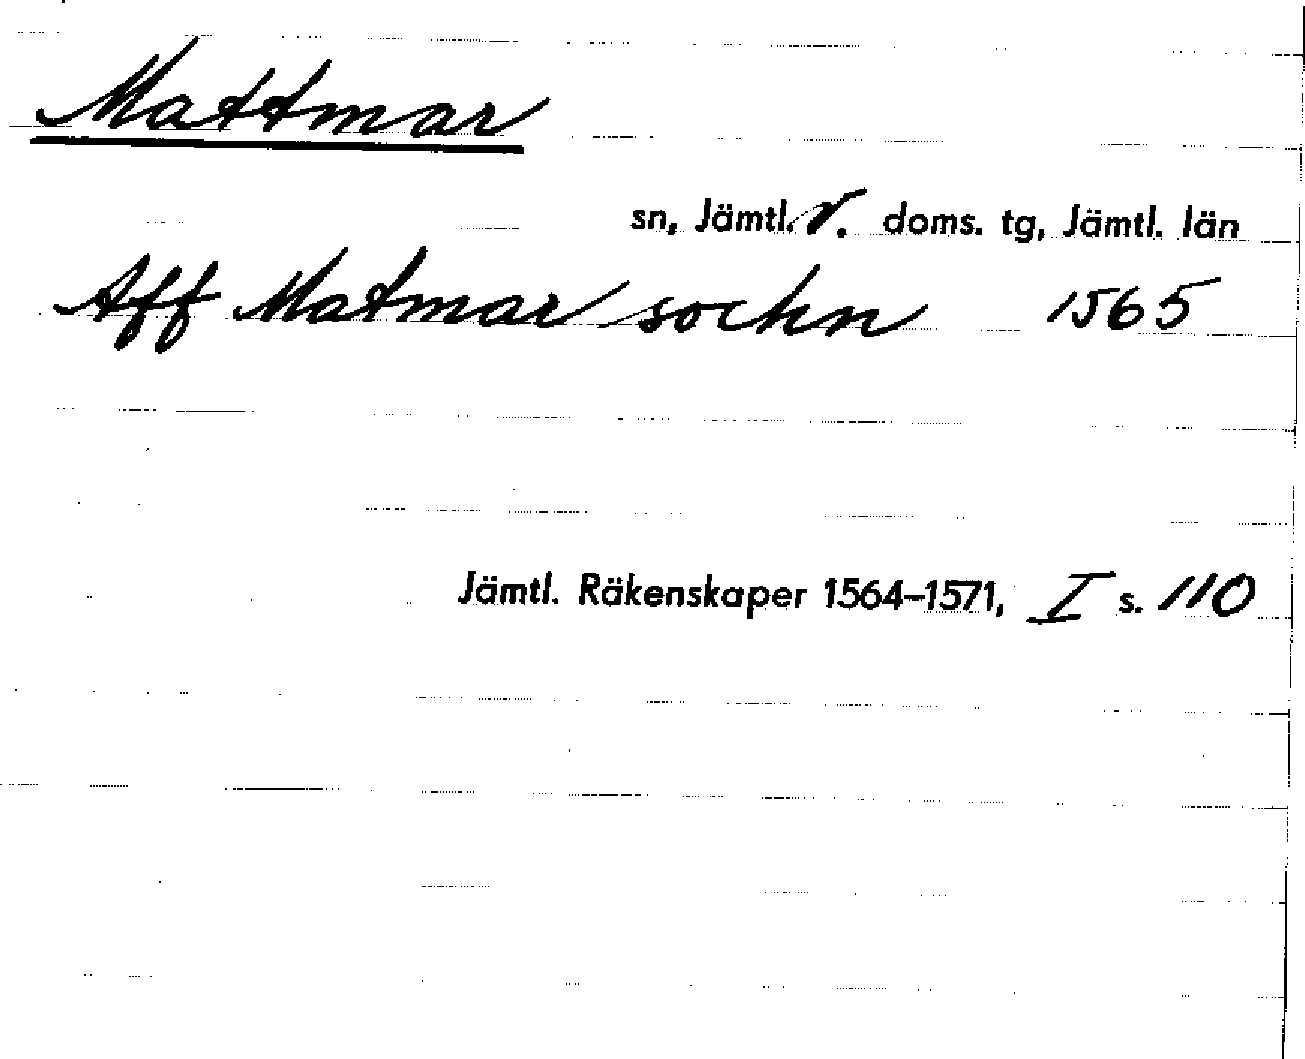 Mattmar
sn, Jämtl. v. doms. tg, Jämtl. län
Aff Matmar sochn 1565
Jämtl. Räkenskaper 1564–1571, I s. 110